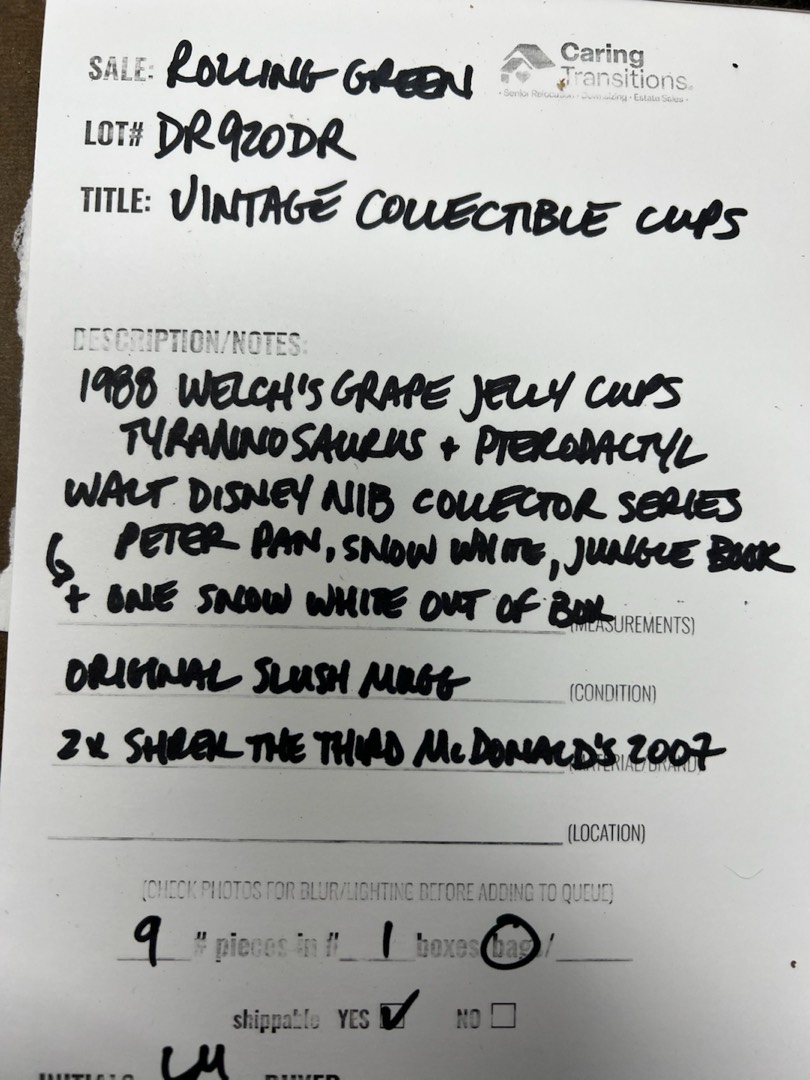 SALE: ROLLING GREEN
Caring
Transitions
LOT# DR920DR
TITLE: VINTAGE COLLECTIBLE CUPS
DESCRIPTION/NOTES:
1988 WELCH'S GRAPE JELLY CUPS
TYRANNOSAURUS + PTERODACTYL
WALT DISNEY NIB COLLECTOR SERIES
PETER PAN, SNOW WHITE, JUNGLE BOOK
+ ONE SNOW WHITE OUT OF BOX
(MEASUREMENTS)
ORIGINAL SLUSH MUGG (CONDITION)
2x SHREK THE THIRD McDONALD'S 2007
(MATERIAL/BRAND)
(LOCATION)
(CHECK PHOTOS FOR BLUR/LIGHTING BEFORE ADDING TO QUEUE)
9 # pieces in # 1 boxes/bags/
shippable YES NO
INITIALS LM BUYER